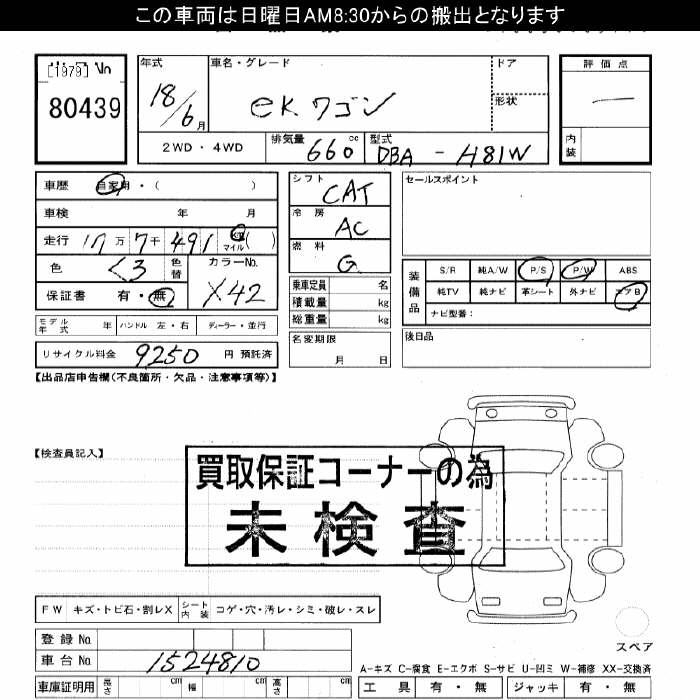 この車両は日曜日AM8:30からの搬出となります
[1979] No
80439
年式 車名・グレード ドア 評価点
18/6月 eKワゴン 形状 —
2WD・4WD 排気量 660cc 型式 DBA-H81W 内装
車歴 自家用・( ) シフト CAT セールスポイント
車検 年 月 冷房 AC
走行 17万7千491 km マイル ( ) 燃料 G
色 くろ 色替 カラーNo. X42
保証書 有・無
乗車定員 名
積載量 kg
総重量 kg
装備品 S/R 純A/W P/S P/W ABS
純TV 純ナビ 革シート 外ナビ エアB
ナビ型番:
モデル年式 年 ハンドル 左・右 ディーラー・並行
名変期限 月 日
後日品
リサイクル料金 9250 円 預託済
【出品店申告欄(不良箇所・欠品・注意事項等)】
【検査員記入】
買取保証コーナーの為
未検査
FW キズ・トビ石・割レX シート内装 コゲ・穴・汚レ・シミ・破レ・スレ
登録No.
スペア
車台No. 1524810
A-キズ C-腐食 E-エクボ S-サビ U-凹ミ W-補修 XX-交換済
車庫証明用 長さ cm 幅 cm 高さ cm 工具 有・無 ジャッキ 有・無